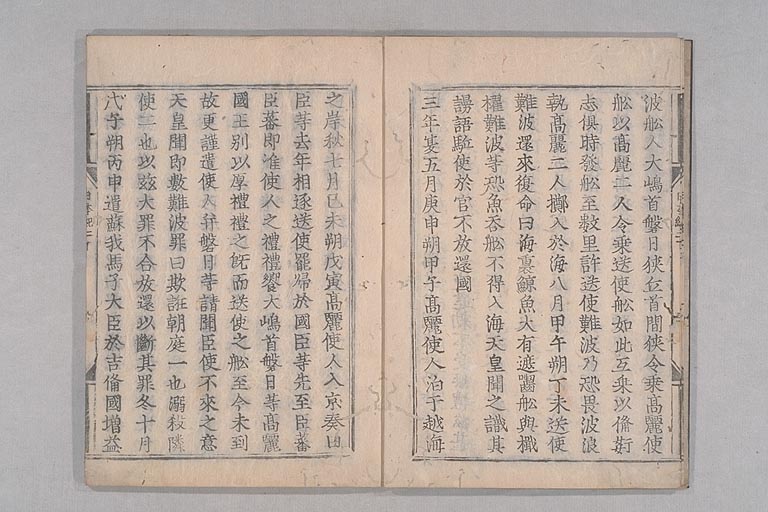 波舩人大嶋首磐日狹丘首間狹令乗髙麗使
舩以髙麗二人令乗送使舩如此互乗以俻姧
志俱時發舩至数里許送使難波乃恐畏波浪
執髙麗二人擲入於海八月甲午朔丁未送使
難波還來復命曰海裏鯨魚大有遮囓舩與檝
櫂難波等恐魚吞舩不得入海天皇聞之識其
謾語駈使於官不放還國
三年夏五月庚申朔甲子髙麗使人泊于越海
之岸秋七月己未朔戊寅髙麗使人入京奏曰
臣等去年相逐送使罷歸於國臣等先至臣蕃
臣蕃即准使人之禮禮饗大嶋首磐日等髙麗
國王別以厚禮禮之旣而送使之舩至今未到
故更謹遣使人幷磐日等請問臣使不來之意
天皇聞即數難波罪曰欺誑朝庭一也溺殺隣
使二也以玆大罪不合放還以斷其罪冬十月
戊子朔丙申遣蘇我馬子大臣於吉俻國增益